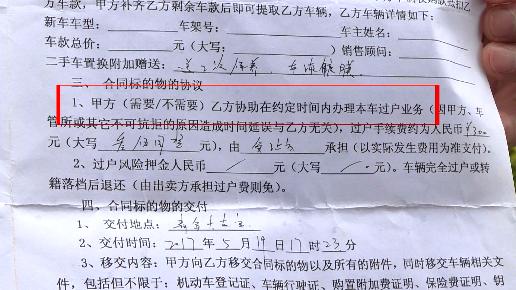 方车款，甲方补齐乙方剩余车款后即可提取乙方车辆，乙方车辆详情如下：
新车车型： 车架号： 车主姓名：
车款总价： 元（大写： ）销售顾问：
二手车置换附加赠送： 送 次保养，
三、合同标的物的协议
1、甲方（需要/不需要）乙方协助在约定时间内办理本车过户业务（因甲方、车
管所或其它不可抗拒的原因造成时间延误与乙方无关），过户手续费约为人民币
元（大写 ），由 承担（以实际发生费用为准支付）。
2、过户风险押金人民币 / 元（大写 / ）。车辆完全过户或转
籍落档后退还（由出卖方承担过户费则免）。
四、合同标的物的交付
1、交付地点：
2、交付时间：2017年5月19日17时23分
3、移交内容：甲方向乙方移交合同标的物以及所有的附件，同时移交车辆相关文
件，包括但不限于：机动车登记证、车辆行驶证、购置附加费证明、保险费证明、钥